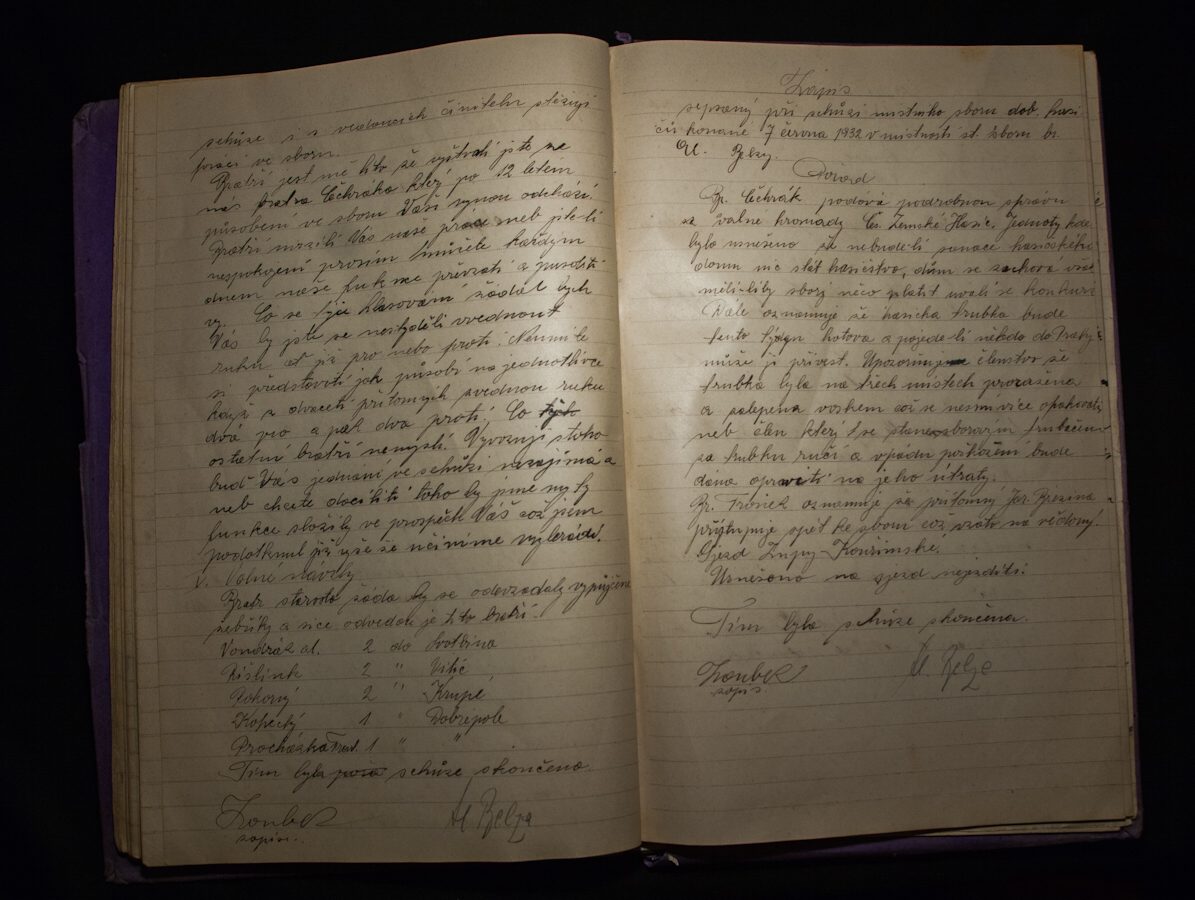 schůze i s vedoucích činitelu stěžují
práci ve sboru.
Bratři jest mě líto že vyštvali jste ze
nás bratra Čechráka který po 12 letém
působení ve sboru Vaší vynou odchází.
Bratři mrzíli Vás naše práce neb jste-li
nespokojeni prosím můžete každým
dnem naše funkce převzati a
vy. Co se týče hlasování žádal bych
Vás by jste se nestyděli zvednout
ruku ať již pro nebo proti.
si představiti jak působí na jednotlivce
když z dvaceti přítomných zvednou ruku
dva pro a pak dva proti, Co
ostatní bratři nemyslí. Vyvozuji z toho
buď Vás jednání ve schůzi nezajímá a
neb chcete docíliti toho by jsme my ty
funkce složily ve prospěch Váš což jsem
podotknul již výše že učiníme nejleradi.
V. Volné návrhy
Bratr starosta žádá by se odevzdaly vypujčene
žebříky a sice odvedou je tito bratři:
Vondrák al. 2 do Svatbína
Kišlink 2 " Vitic
Pokorný 2 " Krupé
Kopecký 1 " Dobrépole
Procházka Frant. 1 " "
Tím byla schůze skončena.
Zoubek
zapis.
Al Belza
Zápis
sepsaný při schůzi místního sboru dob. hasi
čů konané 7 června 1932 v místnosti st. sboru br.
Al. Belzy.
Pořad
Br. Čechrák podává podrobnou zprávu
z valné hromady Čs. Zemské Hasič. Jednoty kde
bylo usneseno že nebude-li sanace hasičského
domu nic stát hasičstvo, dům se zachová však
měli-liby sbory něco platit uvalí se konkurz
Dále oznamuje že hasičká trubka bude
tento týden hotova a pojede-li někdo do Prahy
může ji přivest. Upozorňuje členstvo že
trubka byla na třech místech proražena
a zalepena voskem což se nesmí více opakovati
neb člen který
za trubku ručí a v pádu poškození bude
dána opraviti na jeho útraty.
Br. Tronek oznamuje že přítomný Jar. Březina
přistupuje opět ke sboru což vzato na vědomí.
Sjezd Župy Kouřimské.
Usneseno na sjezd nejezditi.
Tím byla schůze skončena.
Zoubek
zapis.
Al. Belza